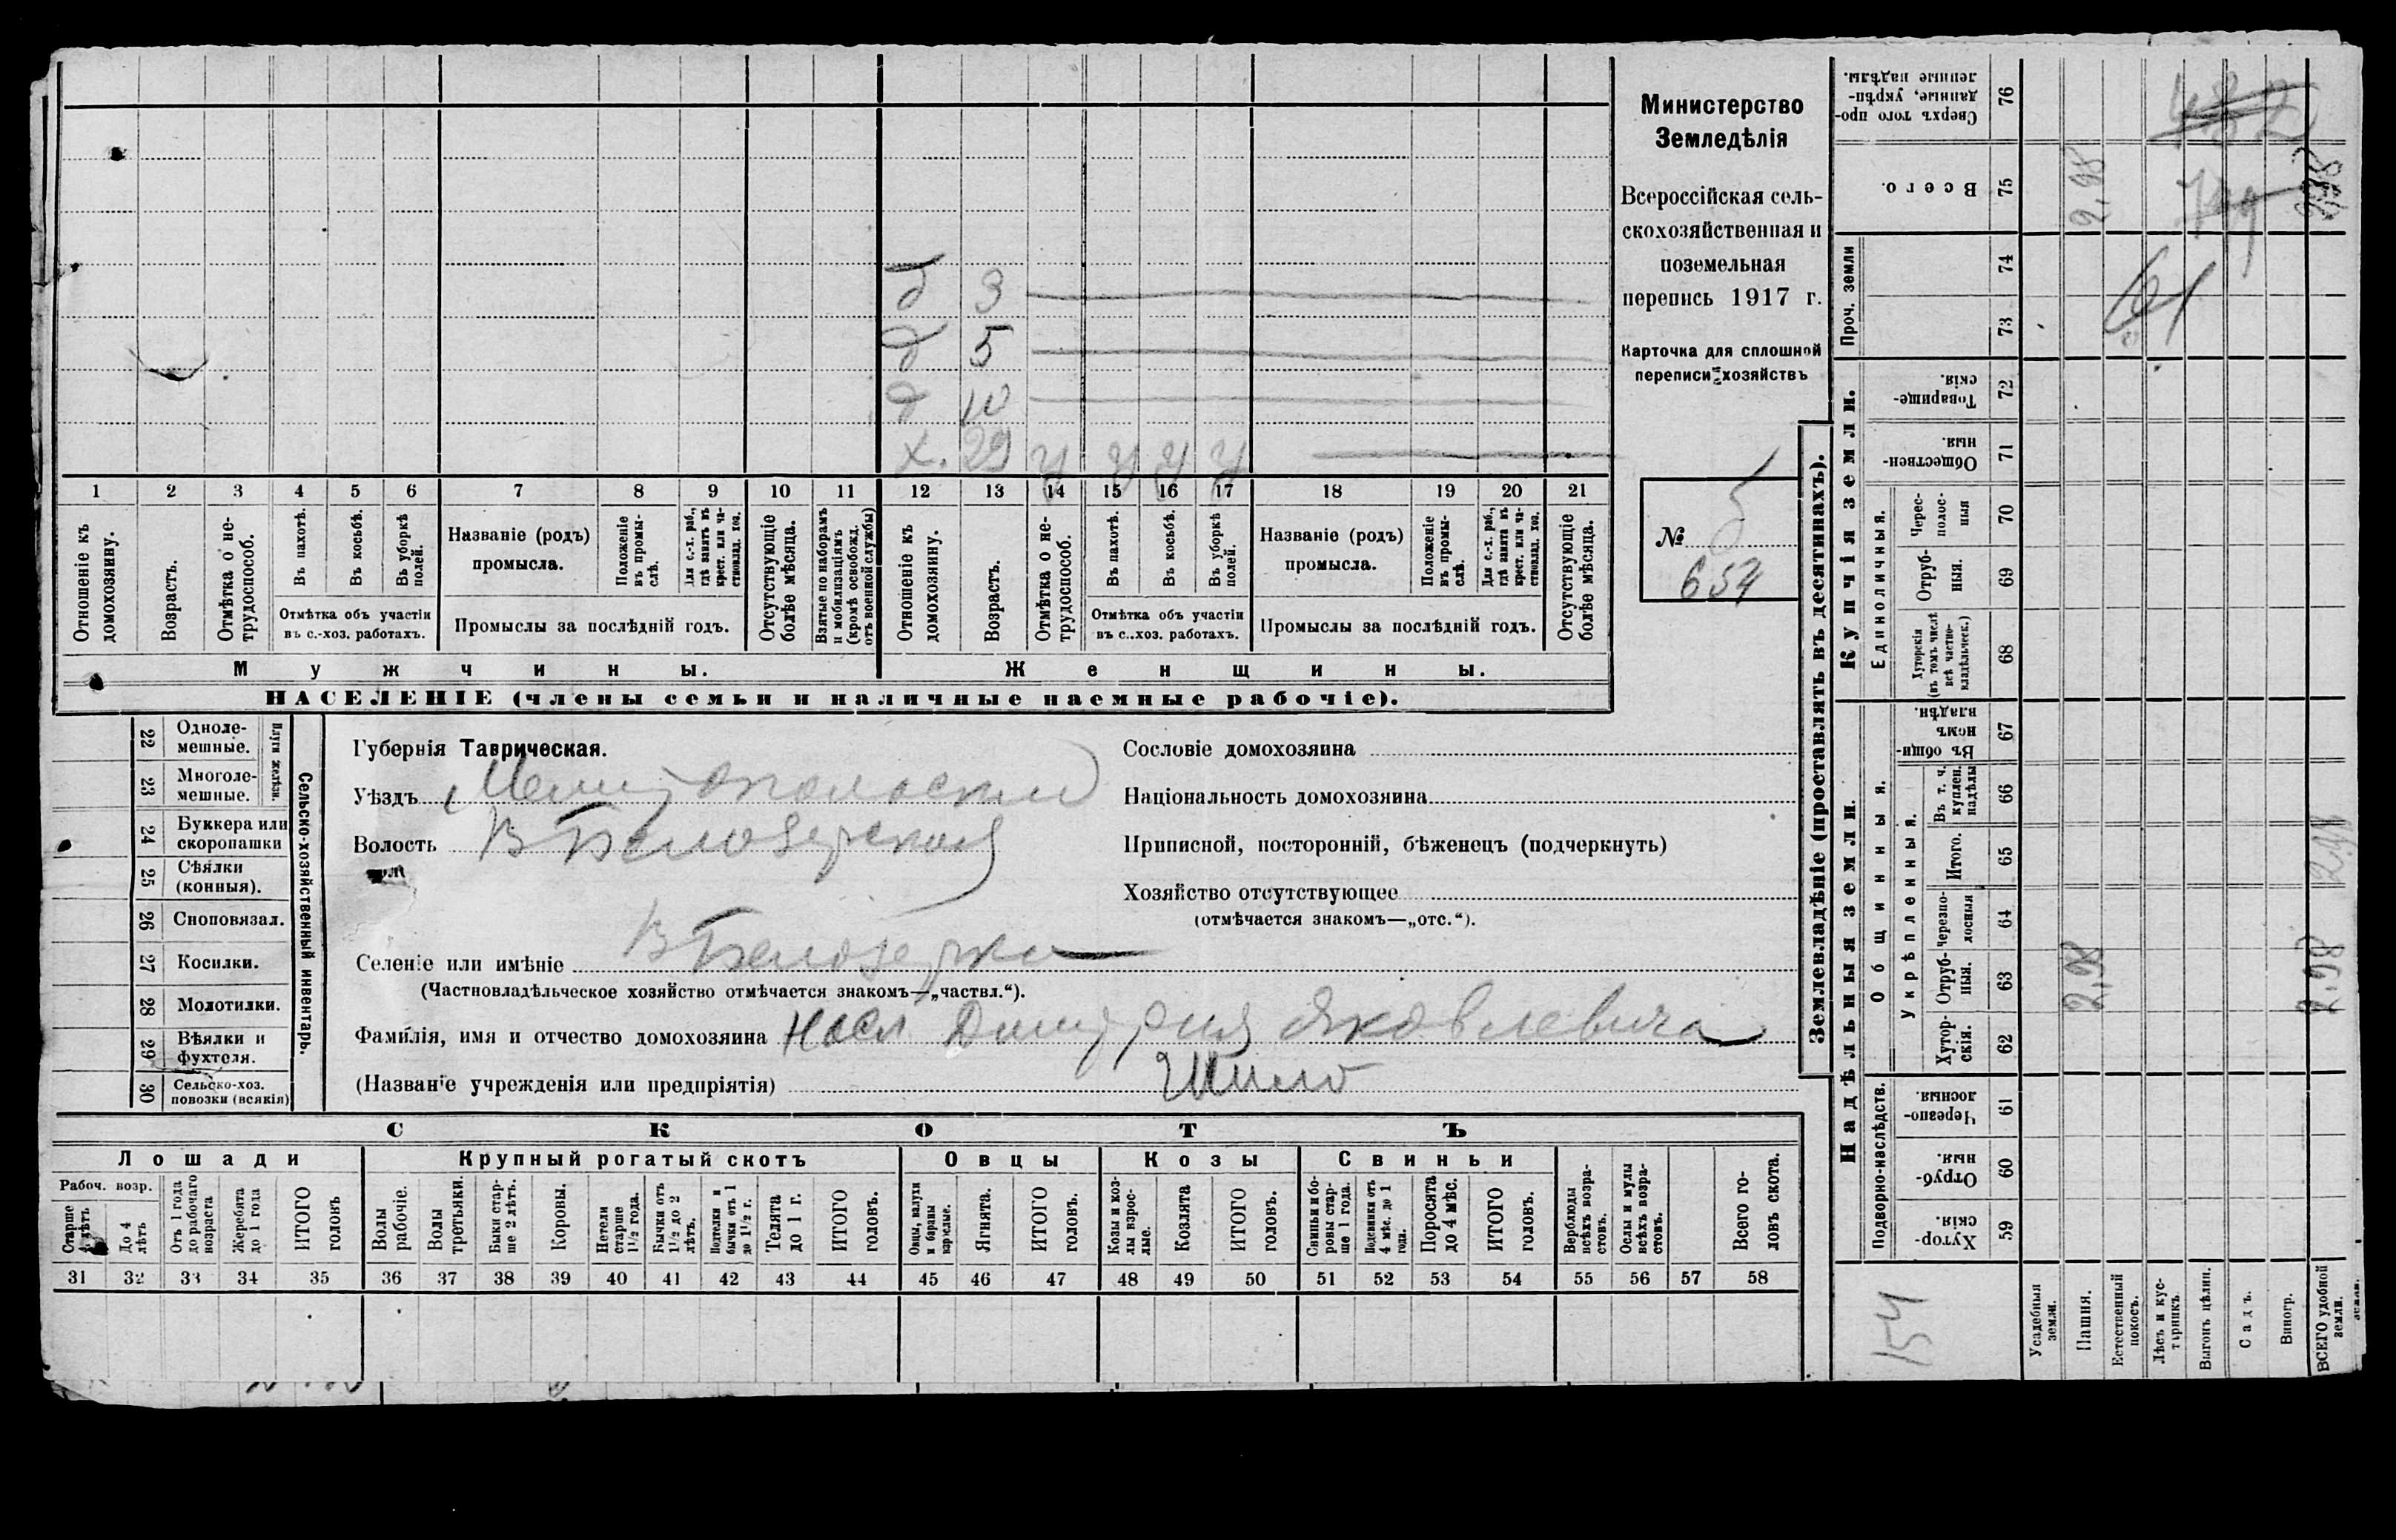 Министерство
Земледѣлія
Всероссійская сель-
скохозяйственная и
поземельная
перепись 1917 г.
Карточка для сплошной
переписи хозяйствъ
№ 5
654
б 3
д 5
д 10
х. 29 у у у у
1 2 3 4 5 6 7 8 9 10 11 12 13 14 15 16 17 18 19 20 21
Отношеніе къ домохозяину.
Возрастъ.
Отмѣтка о не-трудоспособ.
Въ пахотѣ.
Въ косьбѣ.
Въ уборкѣ полей.
Отмѣтка объ участіи
въ с.-хоз. работахъ.
Названіе (родъ)
промысла.
Положеніе въ промы-слѣ.
Для с.-х. раб., гдѣ занятъ въ крест. или ча-стновлад. хоз.
Промыслы за послѣдній годъ.
Отсутствующіе болѣе мѣсяца.
Взятые по наборамъ и мобилизаціямъ (кромѣ освобожд. отъ военной службы)
Отношеніе къ домохозяину.
Возрастъ.
Отмѣтка о не-трудоспособ.
Въ пахотѣ.
Въ косьбѣ.
Въ уборкѣ полей.
Отмѣтка объ участіи
въ с..хоз. работахъ.
Названіе (родъ)
промысла.
Положеніе въ промы-слѣ.
Для с.-х. раб., гдѣ занята въ крест. или ча-стновлад. хоз.
Промыслы за послѣдній годъ.
Отсутствующіе болѣе мѣсяца.
Мужчины. Женщины.
НАСЕЛЕНІЕ (члены семьи и наличные наемные рабочіе).
22 Одноле-мешные.
23 Многоле-мешные.
Плуги желѣзн.
24 Буккера или скоропашки
25 Сѣялки (конныя).
26 Сноповязал.
27 Косилки.
28 Молотилки.
29 Вѣялки и фухтеля.
30 Сельско-хоз. повозки (всякія)
Сельско-хозяйственный инвентарь.
Губернія Таврическая.
Уѣздъ Мелитопольскій
Волость В Белозерская
Селеніе или имѣніе В Белозерка
(Частновладѣльческое хозяйство отмѣчается знакомъ—„частвл.“).
Фамилія, имя и отчество домохозяина Насл Дмитрия Яковлевича
(Названіе учрежденія или предпріятія) Шило
Сословіе домохозяина
Національность домохозяина
Приписной, посторонній, бѣженецъ (подчеркнуть)
Хозяйство отсутствующее
(отмѣчается знакомъ—„отс.“).
СКОТЪ
Лошади Крупный рогатый скотъ Овцы Козы Свиньи
Рабоч. возр.
Старше 4 лѣтъ
До 4 лѣтъ
Отъ 1 года до рабочаго возраста
Жеребята до 1 года
ИТОГО головъ
Волы рабочіе.
Волы третьяки.
Быки стар-ше 2 лѣтъ.
Коровы.
Нетели старше 1 1/2 года.
Бычки отъ 1 1/2 до 2 лѣтъ.
Подтелки и бычки отъ 1 до 1 1/2 г.
Телята до 1 г.
ИТОГО головъ.
Овцы, валухи и бараны взрослые.
Ягнята.
ИТОГО головъ.
Козы и коз-лы взрос-лые.
Козлята
ИТОГО головъ.
Свиньи и бо-ровы стар-ше 1 года.
Подсвинки отъ 4 мѣс. до 1 года.
Поросята до 4 мѣс.
ИТОГО головъ.
Верблюды всѣхъ возра-стовъ.
Ослы и мулы всѣхъ возра-стовъ.
Всего го-ловъ скота.
31 32 33 34 35 36 37 38 39 40 41 42 43 44 45 46 47 48 49 50 51 52 53 54 55 56 57 58
Землевладѣніе (проставлять въ десятинахъ).
Надѣльныя земли.
Подворно-наслѣдств.
Хутор-скія. 59
Отруб-ныя. 60
Черезпо-лосныя. 61
Общинныя.
Укрѣпленныя.
Хутор-скія. 62
Отруб-ныя. 63
черезпо-лосныя 64
Итого. 65
Въ т. ч. куплен. надѣлы 66
Въ общин-номъ владѣн. 67
Купчія земли.
Единоличныя.
Хуторскія (въ томъ числѣ всѣ частно-владѣльческ.) 68
Отруб-ныя. 69
Черес-полос-ныя 70
Обществен-ныя. 71
Товарище-скія. 72
Проч. земли
73 74
Всего. 75
Сверхъ того про-данные, укрѣп-ленные надѣлы. 76
154
Усадебныя земли.
Пашня. 2,98 2,98
Естественный покосъ.
Лѣсъ и кус-тарникъ.
Выгонъ цѣлин.
Садъ.
Виногр.
ВСЕГО удобной земли. 2,98 2,98 2,98
61